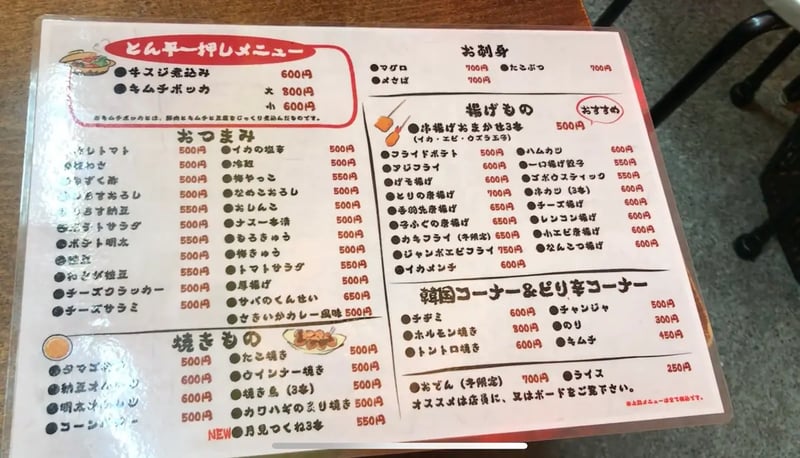 とん平一押しメニュー
●牛スジ煮込み 600円
●キムチポッカ 大 800円
小 600円
※キムチポッカとは、豚肉とキムチと豆腐をじっくり煮込んだものです。
おつまみ
トマト 500円
550円
500円
おろし 500円
納豆 550円
●ポテトサラダ 500円
●ポテト明太 550円
●枝豆 500円
枝豆 550円
●チーズクラッカー 500円
●チーズサラミ 500円
●イカの塩辛 500円
●冷奴 500円
●梅やっこ 550円
●なめこおろし 500円
●おしんこ 500円
●ナス一本漬 500円
●もろきゅう 500円
●梅きゅう 500円
●トマトサラダ 550円
●厚揚げ 500円
●サバのくんせい 650円
●さきいかカレー風味 500円
焼きもの
●タマゴ 500円
●納豆オムレツ 600円
●明太オムレツ 600円
●コーンバター 500円
●たこ焼き 500円
●ウインナー焼き 500円
●焼き鳥(3本) 500円
●カワハギの炙り焼き 500円
NEW●月見つくね3本 550円
お刺身
●マグロ 700円
●たこぶつ 700円
●〆さば 700円
揚げもの
おすすめ
●串揚げおまかせ3本 500円
(イカ・エビ・ウズラ玉子)
●フライドポテト 500円
●アジフライ 600円
●げそ揚げ 600円
●とりの唐揚げ 700円
●手羽先唐揚げ 650円
●子ふぐの唐揚げ 650円
●カキフライ(冬限定) 650円
●ジャンボエビフライ 750円
●イカメンチ 600円
●ハムカツ 600円
●一口揚げ餃子 550円
●ゴボウスティック 550円
●串カツ(3本) 600円
●チーズ揚げ 600円
●レンコン揚げ 600円
●小エビ唐揚げ 600円
●なんこつ揚げ 600円
韓国コーナー&ピリ辛コーナー
●チヂミ 600円
●ホルモン焼き 800円
●トントロ焼き 600円
●チャンジャ 500円
●のり 300円
●キムチ 450円
●おでん(冬限定) 700円
●ライス 250円
オススメは店員に、又はボードをご覧下さい。
※上記メニューは全て税込です。